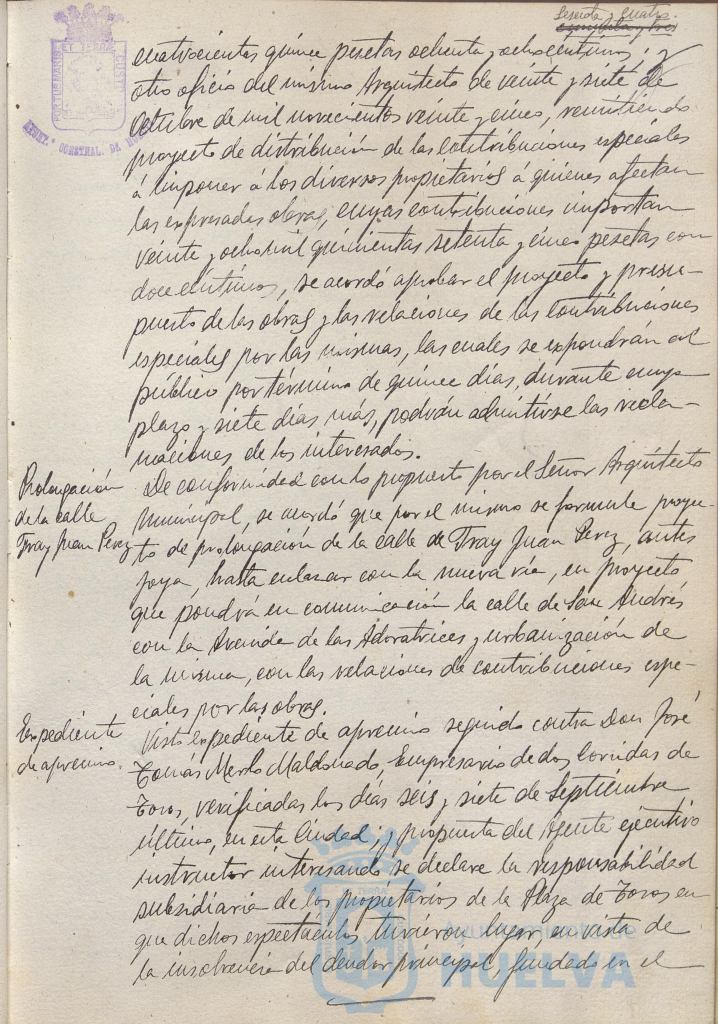 Sesenta y cuatro.
cincuenta y tres
PORTUS MARIS ET TERRAE CUSTO
AYUNT. CONSTNAL. DE HU
cuatrocientas quince pesetas ochenta y ocho centimos; y
otro oficio del mismo Arquitecto de veinte y siete de
Octubre de mil novecientos veinte y cinco, remitiendo
proyecto de distribución de las contribuciones especiales
á imponer á los diversos propietarios á quienes afectan
las expresadas obras, cuyas contribuciones importan
veinte y ocho mil quinientas setenta y cinco pesetas con
doce centimos, se acordó aprobar el proyecto y presu-
puesto de las obras y las relaciones de las contribuciones
especiales por las mismas, las cuales se expondrán al
público por término de quince días, durante cuyo
plazo y siete días más, podrán admitirse las recla-
maciones de los interesados.
Prolongación
de la calle
Fray Juan Perez
De conformidad con lo propuesto por el Señor Arquitecto
municipal, se acordó que por el mismo se formule proyec-
to de prolongación de la calle de Fray Juan Perez, antes
Joya, hasta enlazar con la nueva via, en proyecto
que pondrá en comunicación la calle de San Andrés
con la Avenida de las Adoratrices y urbanización de
la misma, con las relaciones de contribuciones espe-
ciales por las obras.
Expediente
de apremio.
Visto expediente de apremio seguido contra Don José
Tomás Merlo Maldonado, Empresario de dos corridas de
Toros, verificadas los días seis y siete de Septiembre
último, en esta Ciudad; y propuesta del Agente ejecutivo
instructor interesando se declare la responsabilidad
subsidiaria de los propietarios de la Plaza de Toros en
que dichos espectáculos tuvieron lugar, en vista de
la insolvencia del deudor principal, fundado en el
Ayuntamiento de
HUELVA